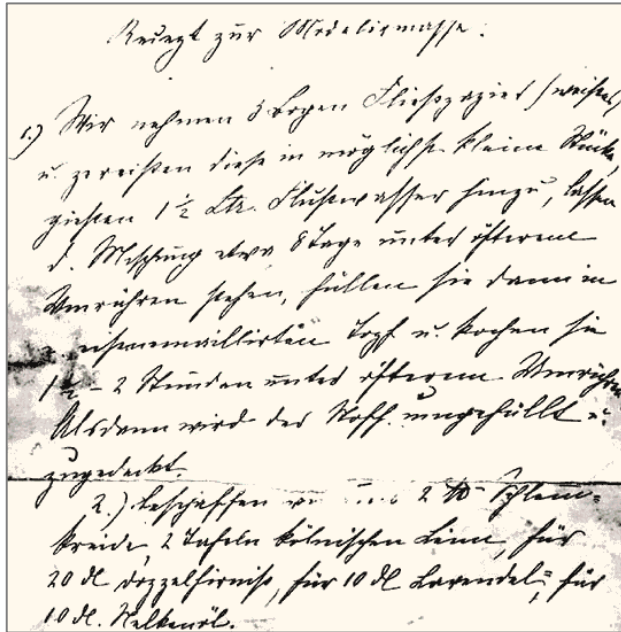 Rezept zur Modeliermasse:
1.) Wir nehmen 3 Bogen Fließpapier (weißes)
u. zereißen diese in möglichst kleine Stücke,
gießen 1½ Ltr. Flußwasser hinzu, lassen
d. Mischung etwa 8 Tage unter öfterem
Umrühren stehen, füllen sie dann in
Topf u. kochen sie
1½ – 2 Stunden unter öfterem Umrühren
Alsdann wird der Stoff umgefüllt u.
zugedeckt.
2.) beschaffen 2 ℔ Schlem=
kreide, 2 Tafeln kölnischen Leim, für
20 dl Doppelfirniß, für 10 dl Lavendel=, für
10 dl. Nelkenöl.